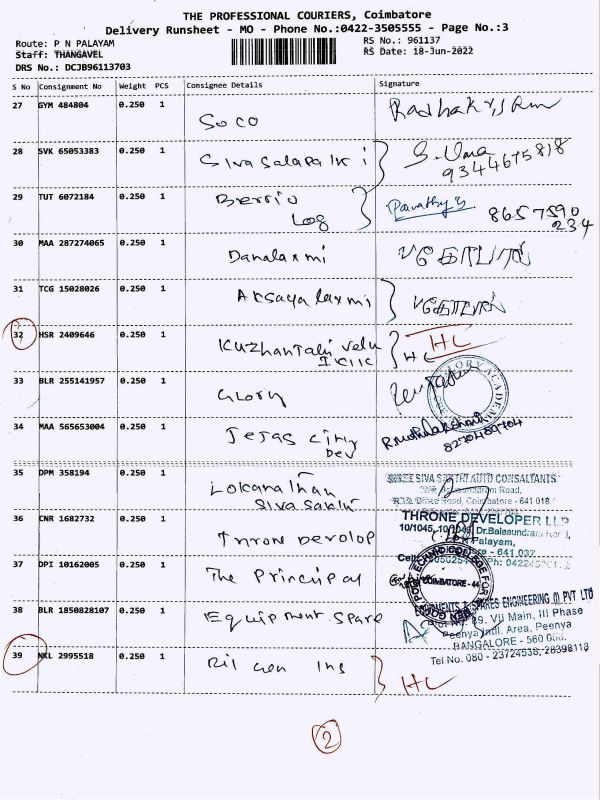 THE PROFESSIONAL COURIERS, Coimbatore
Delivery Runsheet - MO - Phone No.:0422-3505555 - Page No.:3
Route: P N PALAYAM
RS No.: 961137
Staff: THANGAVEL
RS Date: 18-Jun-2022
DRS No.: DCJB96113703
S No Consignment No Weight PCS Consignee Details Signature
27 GYM 484804 0.250 1
Soco
28 SVK 65053383 0.250 1
S. Uma
9344675818
29 TUT 6072184 0.250 1
Log
Parvathy
8657590
234
30 MAA 287274065 0.250 1
Danalaxmi
31 TCG 15028026 0.250 1
Aksaya laxmi
32 HSR 2409646 0.250 1
Kuzhantai velu
HC
HC
33 BLR 255141957 0.250 1
Glory
34 MAA 565653004 0.250 1
Tejas City
Dev
35 DPM 358194 0.250 1
Lokanathan
Siva Sakthi
SHREE SIVA SAKTHI AUTO CONSALTANTS
Road, Coimbatore - 641 018
36 CNR 1682732 0.250 1
Throne Devolop
THRONE DEVELOPER LLP
10/1045, Dr.Balasundram
Palayam,
- 641 037
37 DPI 10162005 0.250 1
The Principal
COIMBATORE - 44
38 BLR 1850828107 0.250 1
Equipment Spare
EQUIPMENTS & SPARES ENGINEERING (I) PVT LTD
89, VII Main, III Phase
Peenya Indl. Area, Peenya
BANGALORE - 560 058.
Tel No. 080 - 23724538, 28398118
39 NKL 2995518 0.250 1
Ril Gen Ins
HC
2